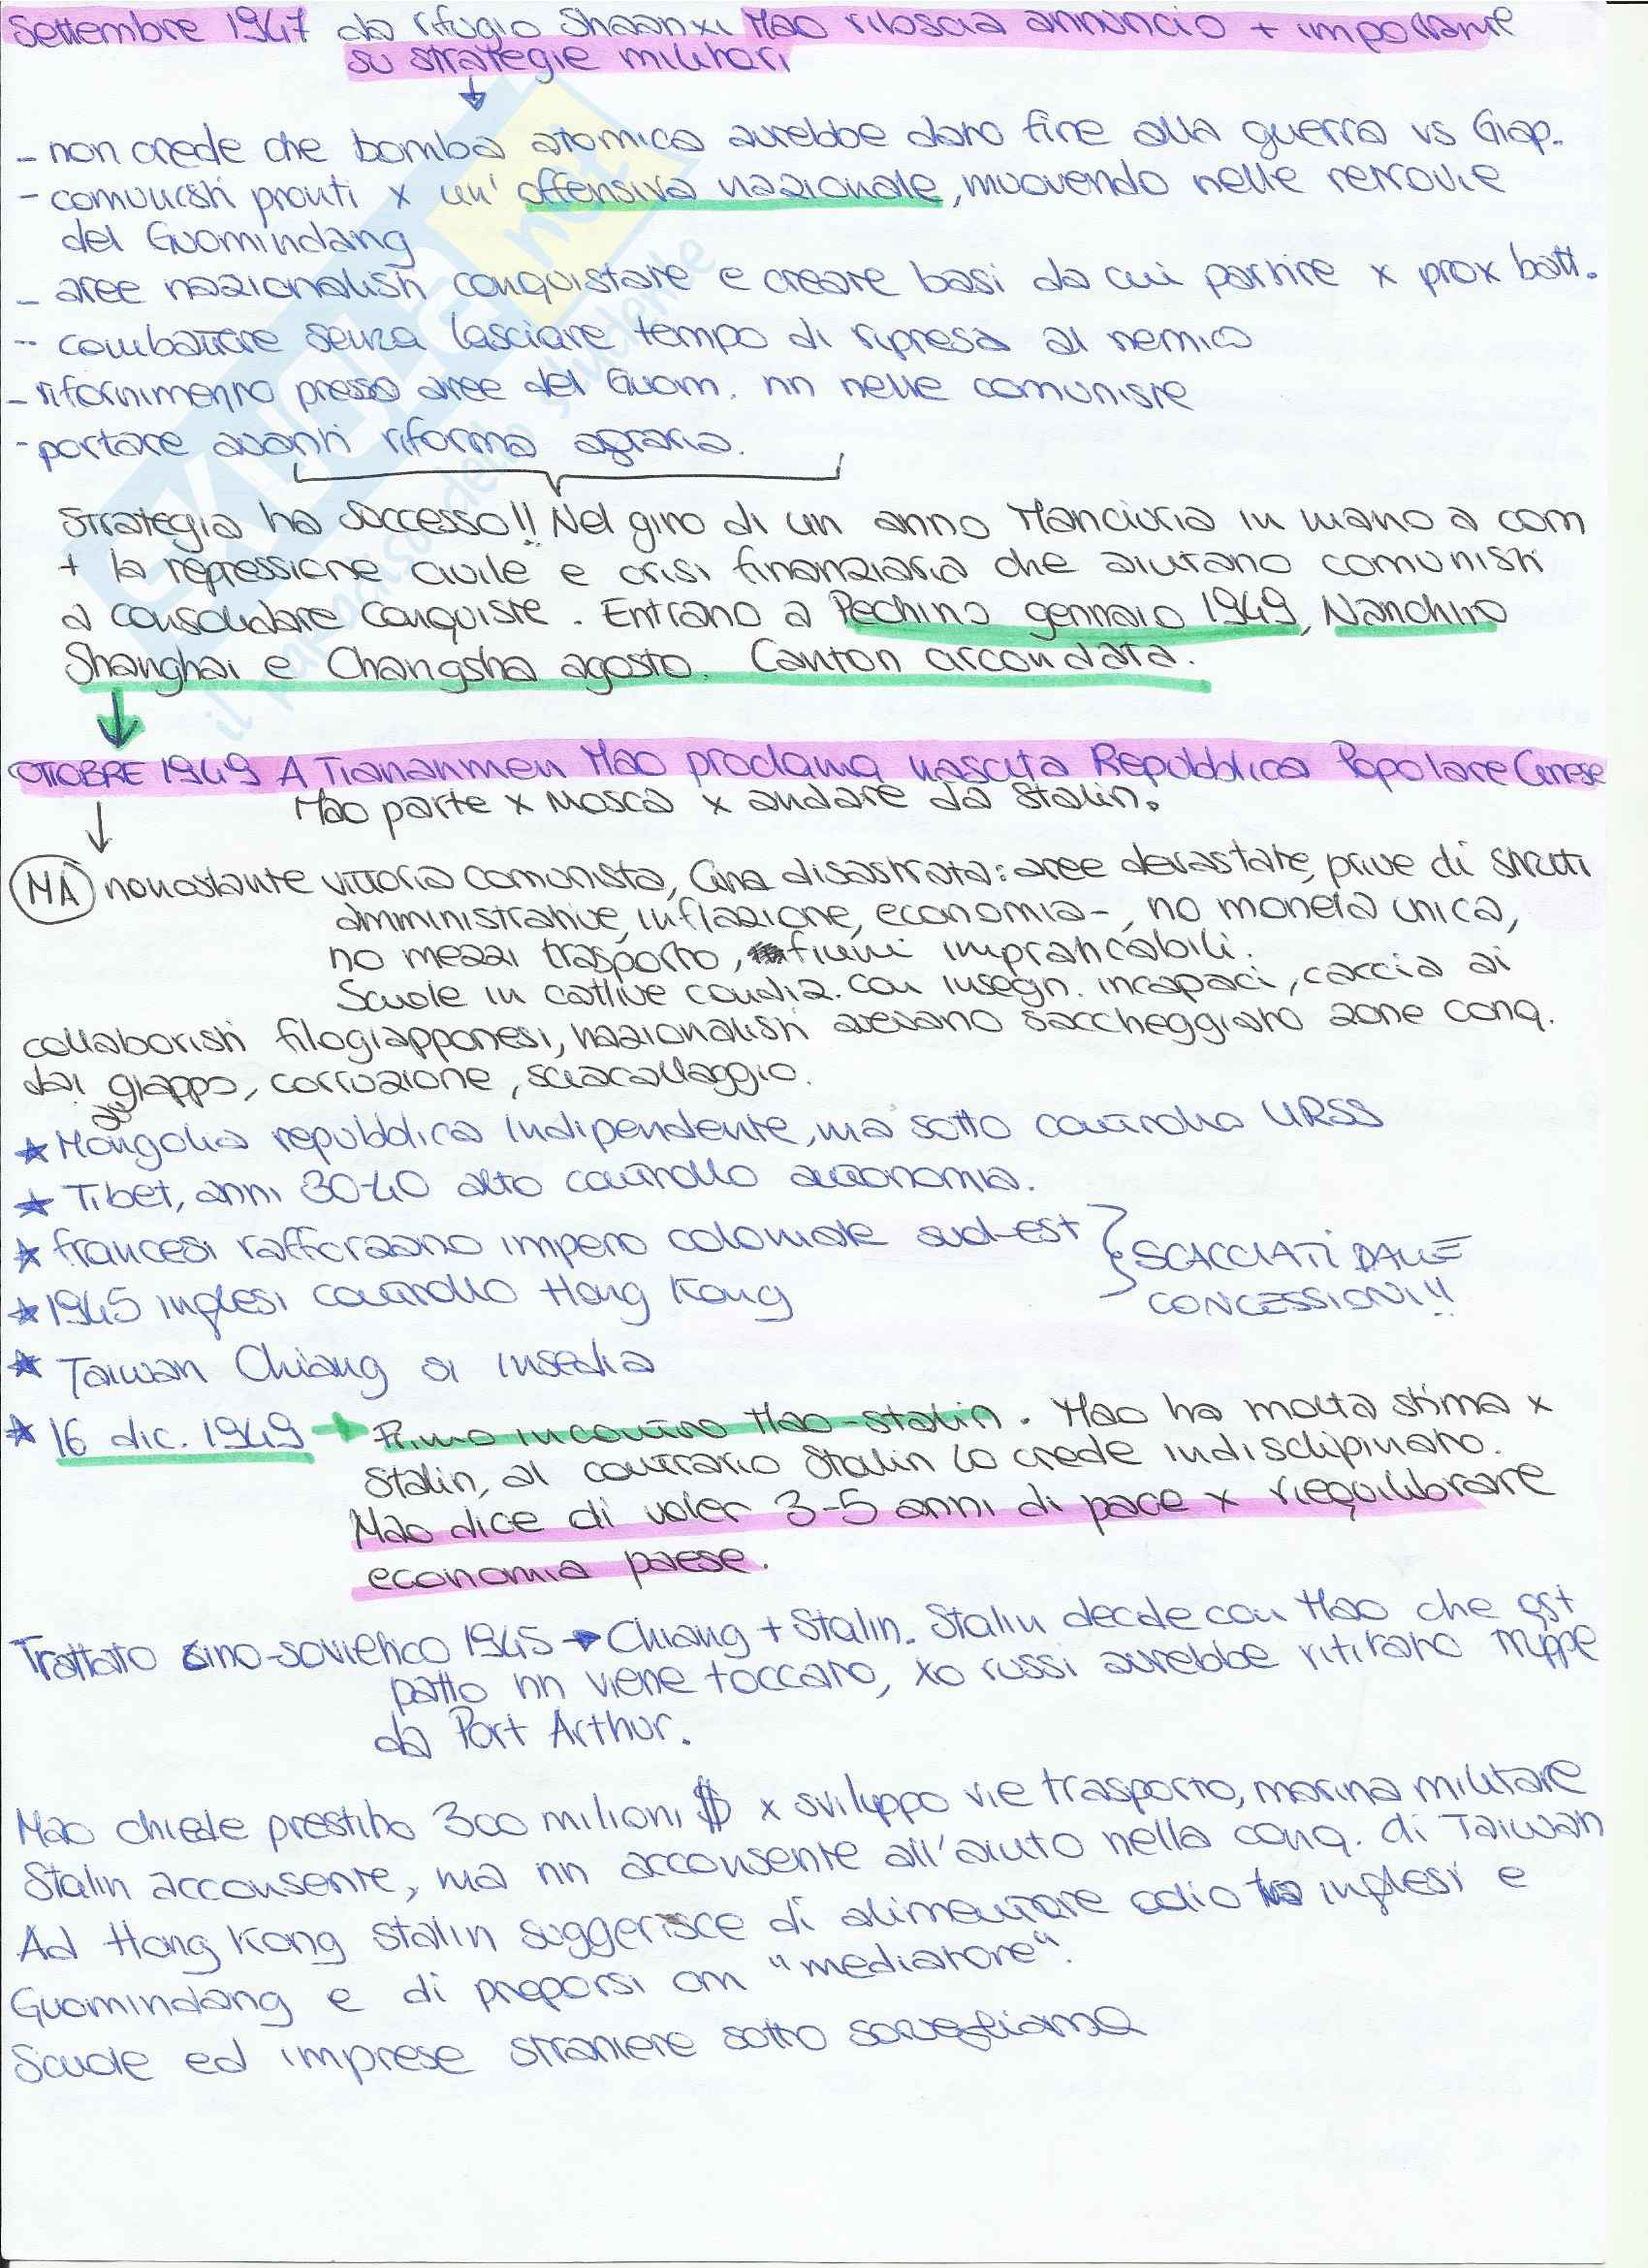 Settembre 1947 da rifugio Shaanxi Mao rilascia annuncio + importante
su strategie militari
- non crede che bomba atomica avrebbe dato fine alla guerra vs Giap.
- comunisti pronti x un' offensiva nazionale, muovendo nelle retrovie
del Guomindang
- aree nazionalisti conquistare e creare basi da cui partire x prox batt.
- combattere senza lasciare tempo di ripresa al nemico
- rifornimento presso aree del Guom. nn nelle comuniste
- portare avanti riforma agraria.
Strategia ha successo!! Nel giro di un anno Manciuria in mano a com
+ la repressione civile e crisi finanziaria che aiutano comunisti
a consolidare conquiste. Entrano a Pechino gennaio 1949, Nanchino
Shanghai e Changsha agosto. Canton circondata.
OTTOBRE 1949 A Tiananmen Mao proclama nascita Repubblica Popolare Cinese
Mao parte x Mosca x andare da Stalin.
MA nonostante vittoria comunista, Cina disastrata: aree devastate, prive di strutt
amministrative, inflazione, economia-, no moneta unica,
no mezzi trasporto, fiumi impraticabili.
Scuole in cattive condiz. con insegn. incapaci, caccia ai
collaboristi filogiapponesi, nazionalisti avevano saccheggiato zone conq.
dai giappo, corruzione, sciacallaggio.
★ Mongolia repubblica indipendente, ma sotto controllo URSS
★ Tibet, anni 30-40 alto controllo autonomia.
★ francesi rafforzano impero coloniale sud-est
★ 1945 inglesi controllo Hong Kong
SCACCIATI DALLE
CONCESSIONI!!
★ Taiwan Chiang si insedia
★ 16 dic. 1949 → Primo incontro Mao-Stalin. Mao ha molta stima x
Stalin, al contrario Stalin lo crede indisclipinato.
Mao dice di voler 3-5 anni di pace x riequilibrare
economia paese.
Trattato sino-sovietico 1945 → Chiang + Stalin. Stalin decide con Mao che qst
patto nn viene toccato, xo russi avrebbe ritirato truppe
da Port Arthur.
Mao chiede prestito 300 milioni $ x sviluppo vie trasporto, marina militare
Stalin acconsente, ma nn acconsente all'aiuto nella conq. di Taiwan
Ad Hong Kong Stalin suggerisce di alimentare odio tra inglesi e
Guomindang e di proporsi om "mediatore".
Scuole ed imprese straniere sotto sorveglianza